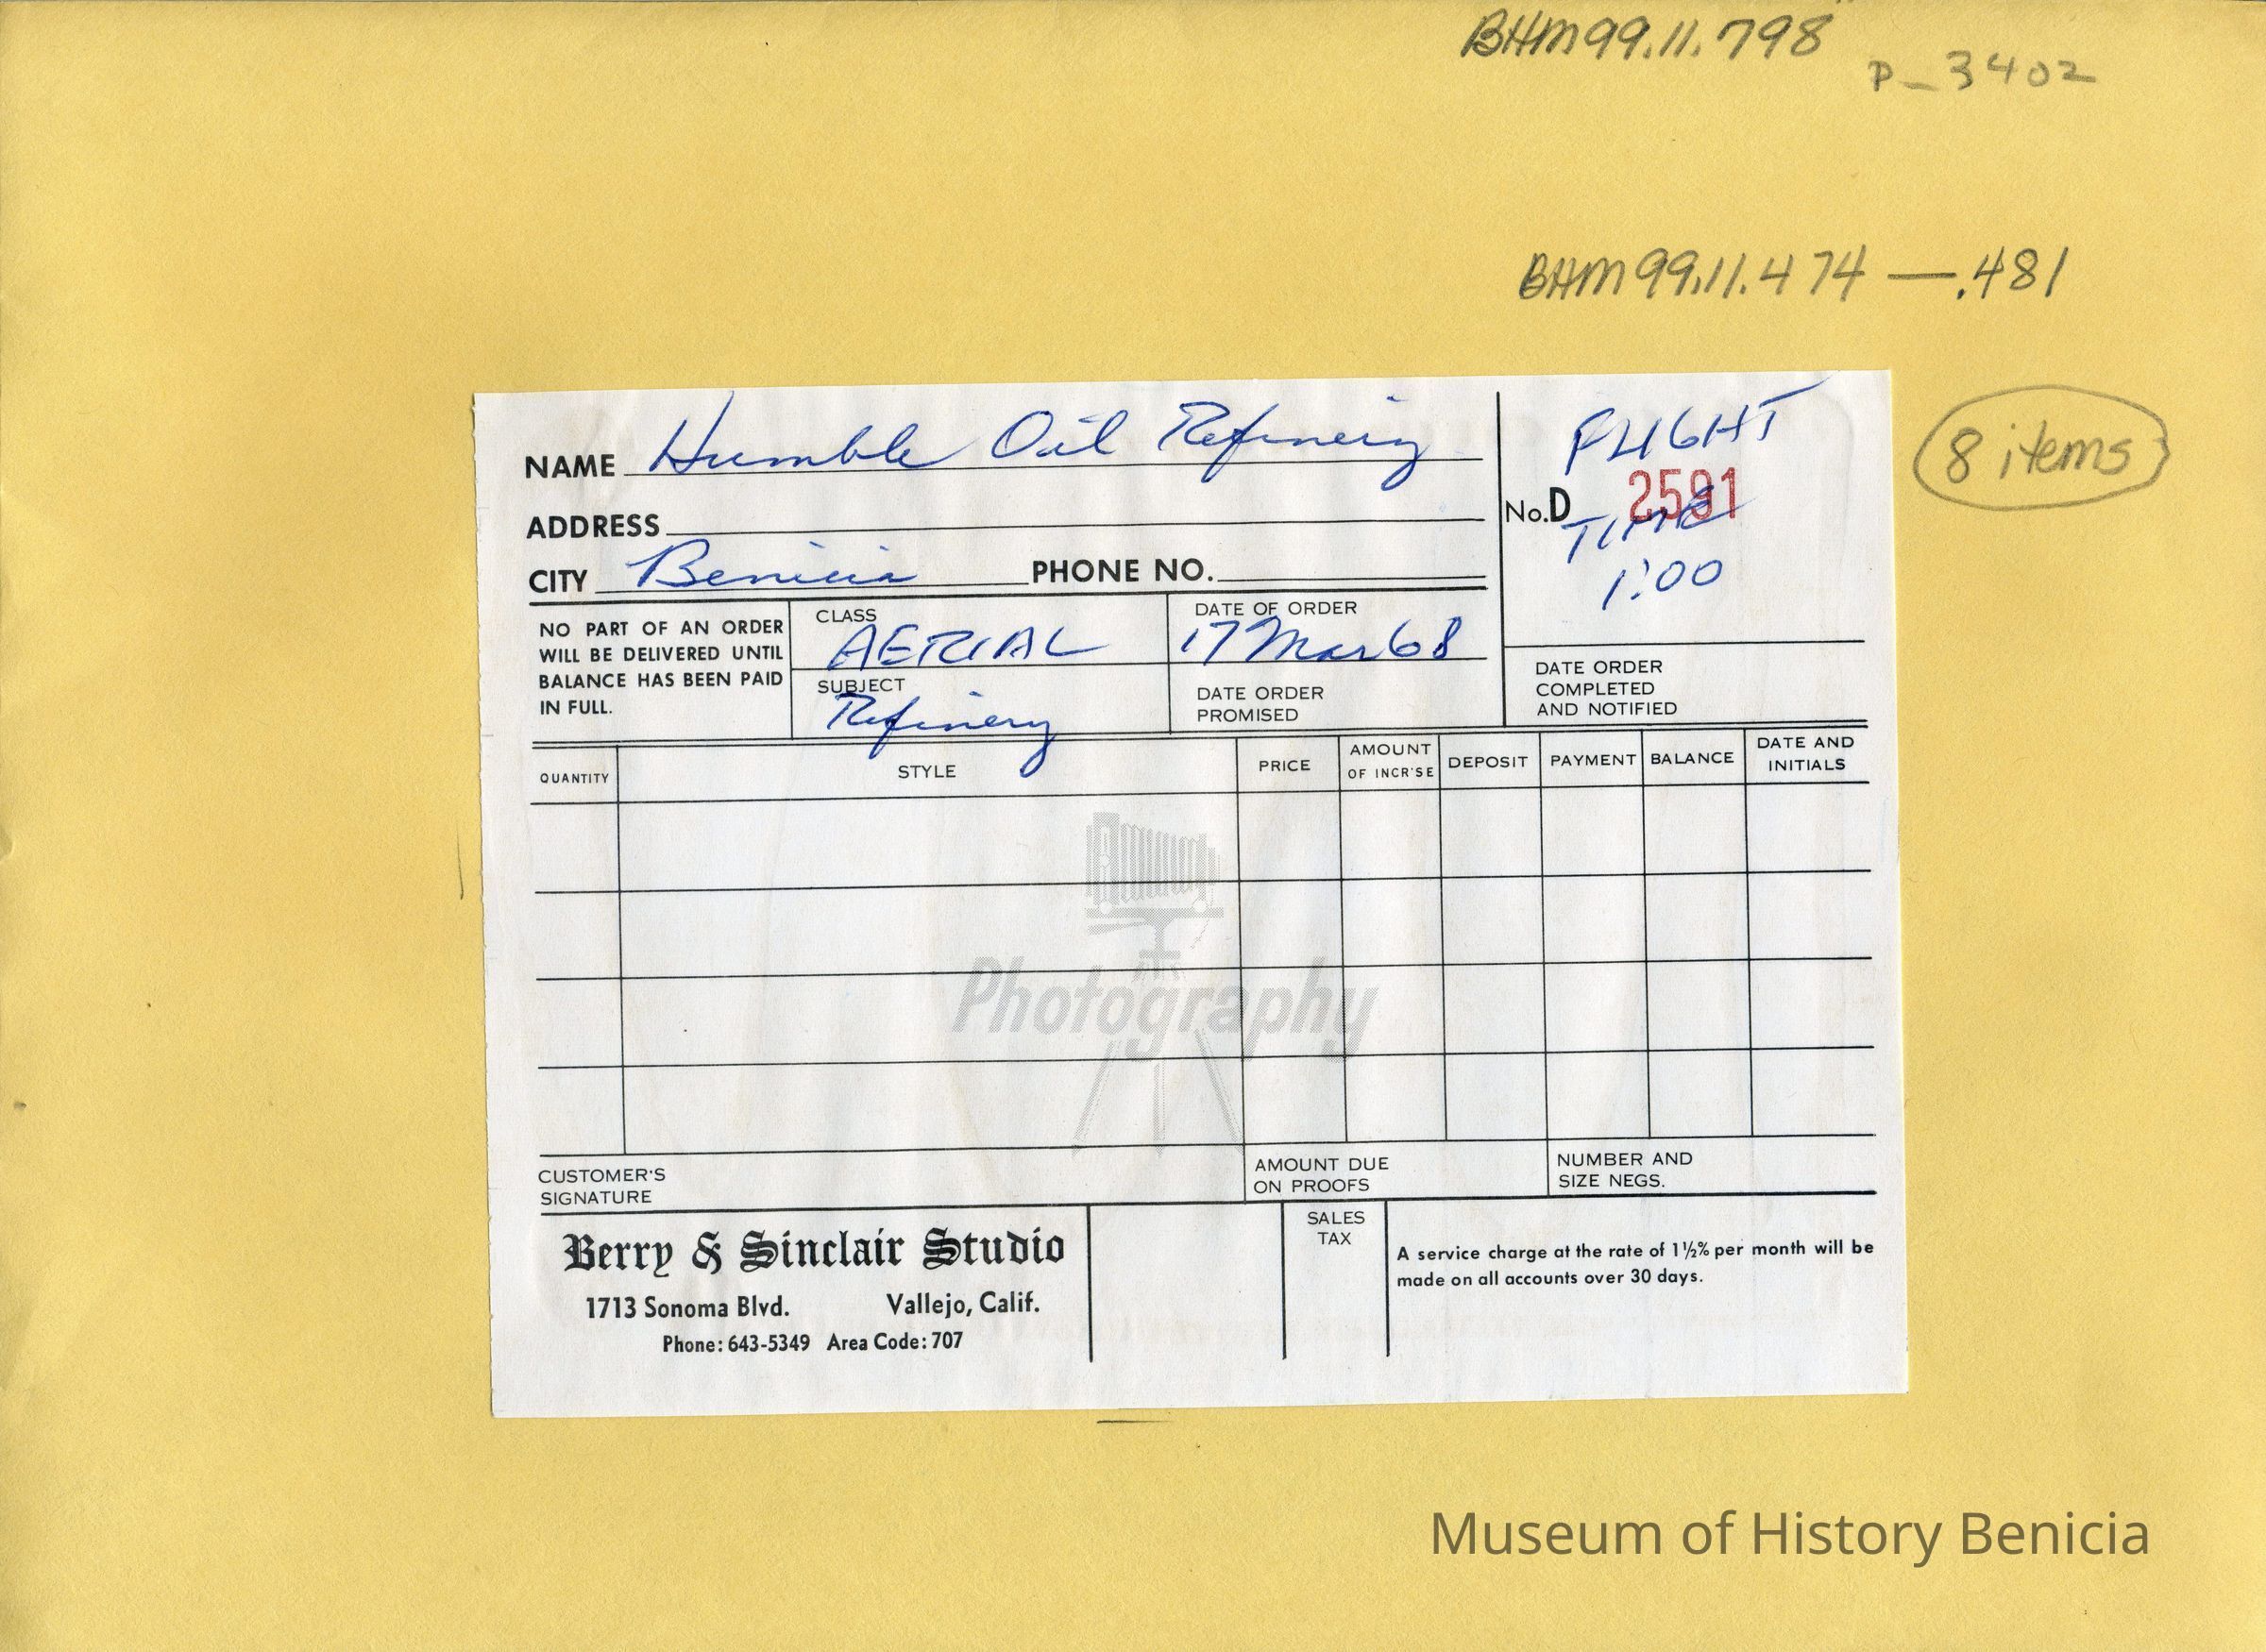 BHM99.11.798
P-3402
BHM99.11.474 — .481
8 items
NAME Humble Oil Refinery
FLIGHT
No.D 2591
TIME
1:00
ADDRESS
CITY Benicia PHONE NO.
NO PART OF AN ORDER
WILL BE DELIVERED UNTIL
BALANCE HAS BEEN PAID
IN FULL.
CLASS
AERIAL
SUBJECT
Refinery
DATE OF ORDER
17 Mar 68
DATE ORDER
PROMISED
DATE ORDER
COMPLETED
AND NOTIFIED
QUANTITY
STYLE
PRICE
AMOUNT
OF INCR'SE
DEPOSIT
PAYMENT
BALANCE
DATE AND
INITIALS
Photography
CUSTOMER'S
SIGNATURE
AMOUNT DUE
ON PROOFS
NUMBER AND
SIZE NEGS.
Berry & Sinclair Studio
1713 Sonoma Blvd. Vallejo, Calif.
Phone: 643-5349 Area Code: 707
SALES
TAX
A service charge at the rate of 1½% per month will be
made on all accounts over 30 days.
Museum of History Benicia